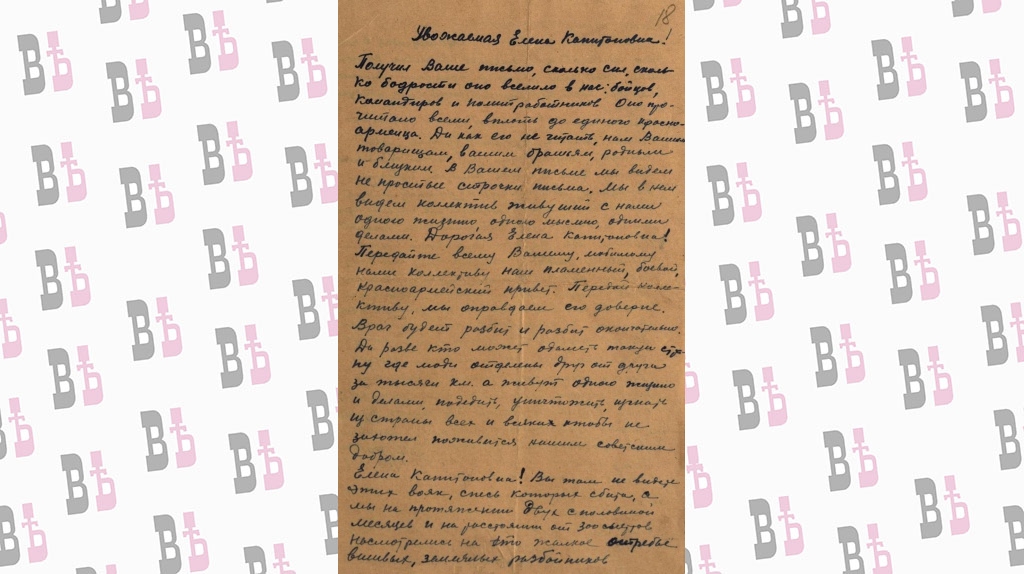 18
Уважаемая Елена Капитоновна!
Получил Ваше письмо, сколько сил, сколь-
ко бодрости оно вселило в нас: бойцов,
командиров и политработников Оно про-
читано всеми, вплоть до единого красно-
армейца. Да как его не читать, нам Вашим
товарищам, вашим братьям, родным
и близким. В Вашем письме мы видем
не простые строчки письма. Мы в нем
видем коллектив живущий с нами
одного жизнью, одного мыслью, одними
делами. Дорогая Елена Капитоновна!
Передайте всему Вашему, любимому
нами коллективу наш пламенный, боевой,
красноармейский привет. Передай колле-
ктиву, мы оправдаем его доверие.
Враг будет разбит и разбит окончательно.
Да разве кто может одолеть такую стра-
ну где люди отделены друг от друга
за тысячи км. а живут одного жизнью
и делами, победить, уничтожить, изгнать
из страны всех и всяких чтобы не
захотел поживится нашим советским
добром.
Елена Капитоновна! Вы там не видете
этих вояк, спесь которых сбита, а
мы на протяжении двух с половиной
месяцев и на расстоянии от
насмотрелись на это жалкое отребье
вшивых, разбойников
ВѢ